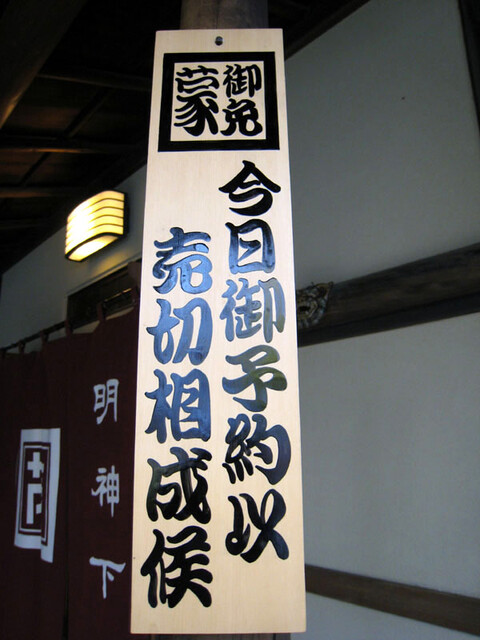 御免
蒙
今日御予約以
売切相成候
明神下